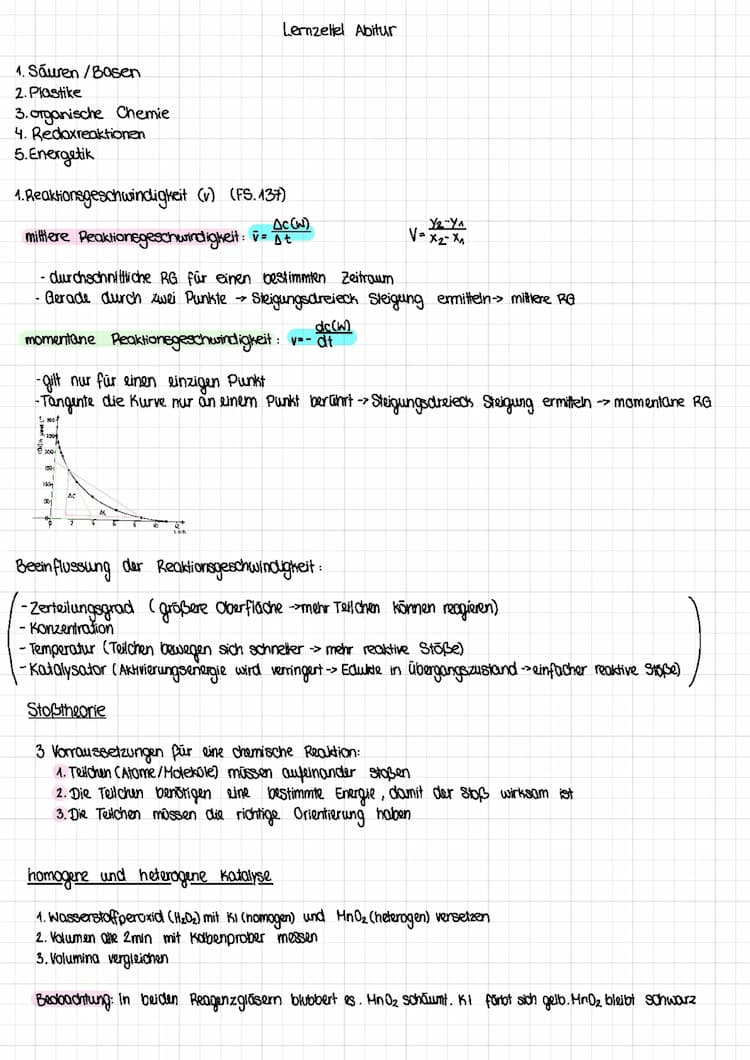 Lernzettel Abitur
1. Säuren / Basen
2. Plastike
3. organische Chemie
4. Redoxreaktionen
5. Energetik
1. Reaktionsgeschwindigkeit (v) (FS. 137)
mittlere Reaktionsgeschwindigkeit: v̄ = Δc(W)/Δt V = y₂-y₁/x₂-x₁
- durchschnittliche RG für einen bestimmten Zeitraum
- Gerade durch zwei Punkte → Steigungsdreieck Steigung ermitteln → mittlere RG
momentane Reaktionsgeschwindigkeit: v = - dc(W)/dt
- gilt nur für einen einzigen Punkt
- Tangente die Kurve nur an einem Punkt berührt → Steigungsdreieck Steigung ermitteln → momentane RG
Beeinflussung der Reaktionsgeschwindigkeit:
- Zerteilungsgrad (größere Oberfläche → mehr Teilchen können reagieren)
- Konzentration
- Temperatur (Teilchen bewegen sich schneller → mehr reaktive Stöße)
- Katalysator (Aktivierungsenergie wird verringert → Edukte in Übergangszustand → einfacher reaktive Stöße)
Stoßtheorie
3 Vorraussetzungen für eine chemische Reaktion:
1. Teilchen (Atome/Moleküle) müssen aufeinander stoßen
2. Die Teilchen benötigen eine bestimmte Energie, damit der Stoß wirksam ist
3. Die Teilchen müssen die richtige Orientierung haben
homogene und heterogene Katalyse
1. Wasserstoffperoxid (H₂O₂) mit KI (homogen) und MnO₂ (heterogen) versetzen
2. Volumen alle 2min mit Kolbenprober messen
3. Volumina vergleichen
Beobachtung: In beiden Reagenzgläsern blubbert es. MnO₂ schäumt. KI färbt sich gelb. MnO₂ bleibt schwarz